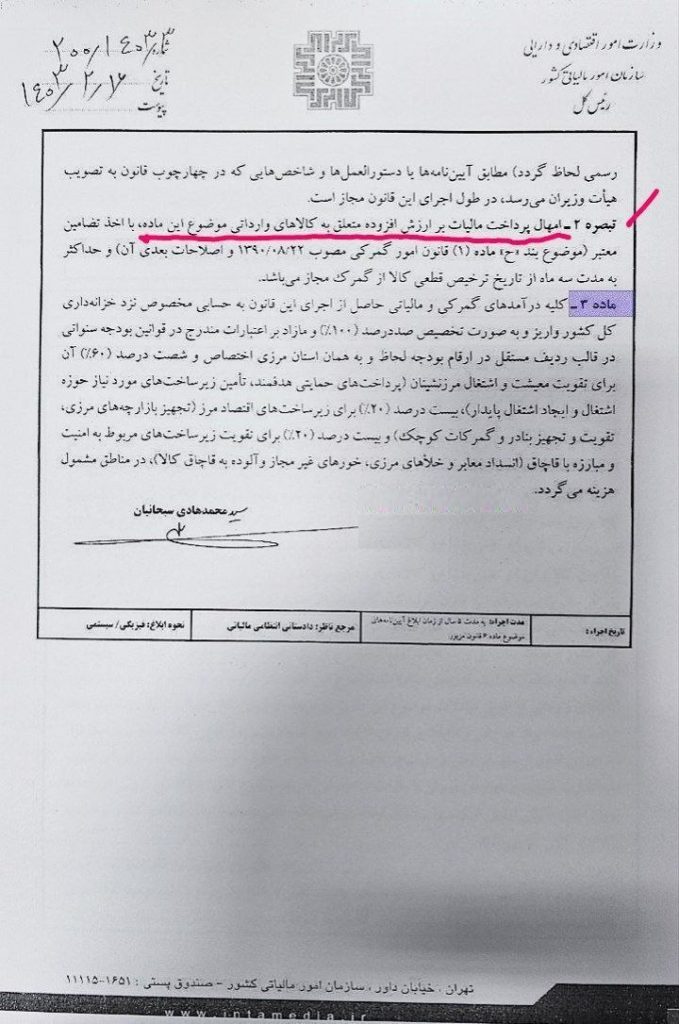 وزارت امور اقتصادی و دارایی
سازمان امور مالیاتی کشور
رئیس کل
شماره ۲۰۰/۱۴۰۳/۳
تاریخ ۱۴۰۳/۲/۱۶
پیوست
رسمی لحاظ گردد) مطابق آیین‌نامه‌ها یا دستورالعمل‌ها و شاخص‌هایی که در چهارچوب قانون به تصویب
هیأت وزیران می‌رسد، در طول اجرای این قانون مجاز است.
تبصره ۲ـ امهال پرداخت مالیات بر ارزش افزوده متعلق به کالاهای وارداتی موضوع این ماده، با اخذ تضامین
معتبر (موضوع بند «ح» ماده (۱) قانون امور گمرکی مصوب ۱۳۹۰/۰۸/۲۲ و اصلاحات بعدی آن) و حداکثر
به مدت سه ماه از تاریخ ترخیص قطعی کالا از گمرک مجاز می‌باشد.
ماده ۳ـ کلیه درآمدهای گمرکی و مالیاتی حاصل از اجرای این قانون به حسابی مخصوص نزد خزانه‌داری
کل کشور واریز و به صورت تخصیص صددرصد (۱۰۰٪) و مازاد بر اعتبارات مندرج در قوانین بودجه سنواتی
در قالب ردیف مستقل در ارقام بودجه لحاظ و به همان استان مرزی اختصاص و شصت درصد (۶۰٪) آن
برای تقویت معیشت و اشتغال مرزنشینان (پرداخت‌های حمایتی هدفمند، تأمین زیرساخت‌های مورد نیاز حوزه
اشتغال و ایجاد اشتغال پایدار)، بیست درصد (۲۰٪) برای زیرساخت‌های اقتصاد مرز (تجهیز بازارچه‌های مرزی،
تقویت و تجهیز بنادر و گمرکات کوچک) و بیست درصد (۲۰٪) برای تقویت زیرساخت‌های مربوط به امنیت
و مبارزه با قاچاق (انسداد معابر و خلأهای مرزی، خورهای غیر مجاز و آلوده به قاچاق کالا)، در مناطق مشمول
هزینه می‌گردد.
سید محمدهادی سبحانیان
تاریخ اجراء:
مدت اجراء: به مدت ۵ سال از زمان ابلاغ آیین‌نامه‌های
موضوع ماده ۶ قانون مزبور
مرجع ناظر: دادستانی انتظامی مالیاتی
نحوه ابلاغ: فیزیکی/ سیستمی
تهران ، خیابان داور ، سازمان امور مالیاتی کشور - صندوق پستی : ۱۶۵۱-۱۱۱۱۵
www.intamedia.ir